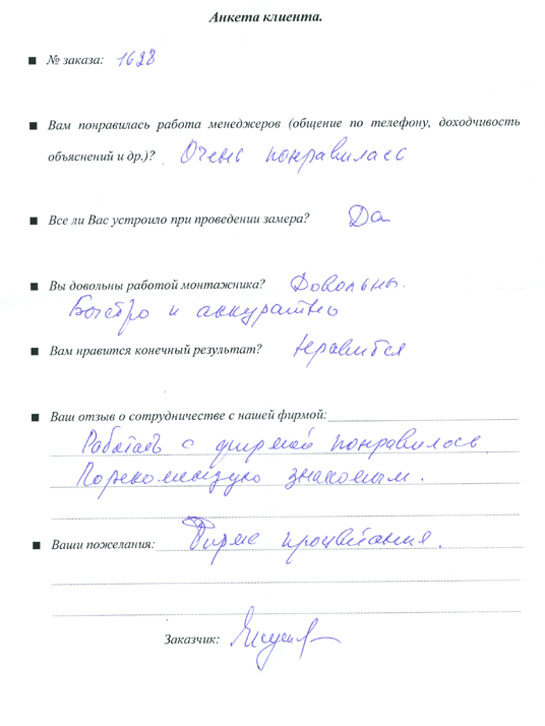 Анкета клиента.
№ заказа: 1628
Вам понравилась работа менеджеров (общение по телефону, доходчивость
объяснений и др.)? Очень понравилась
Все ли Вас устроило при проведении замера? Да
Вы довольны работой монтажника? Довольны.
Быстро и аккуратно
Вам нравится конечный результат? Нравится
Ваш отзыв о сотрудничестве с нашей фирмой:
Работать с фирмой понравилось
Порекомендую знакомым.
Ваши пожелания: Фирме процветания.
Заказчик: